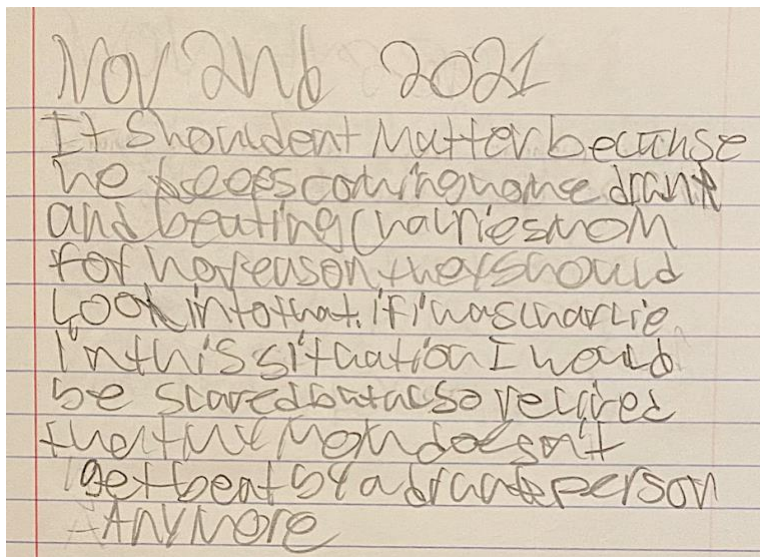 Nov 2Nd 2021
It Shouldent Matter because
he keeps coming home drunk
and beating Charlies mom
for no reason they should
Look into that. if i was charlie
in this situation I would
be scared but also relived
that my Mom doesn't
get beat by a drunk person
ANYMore